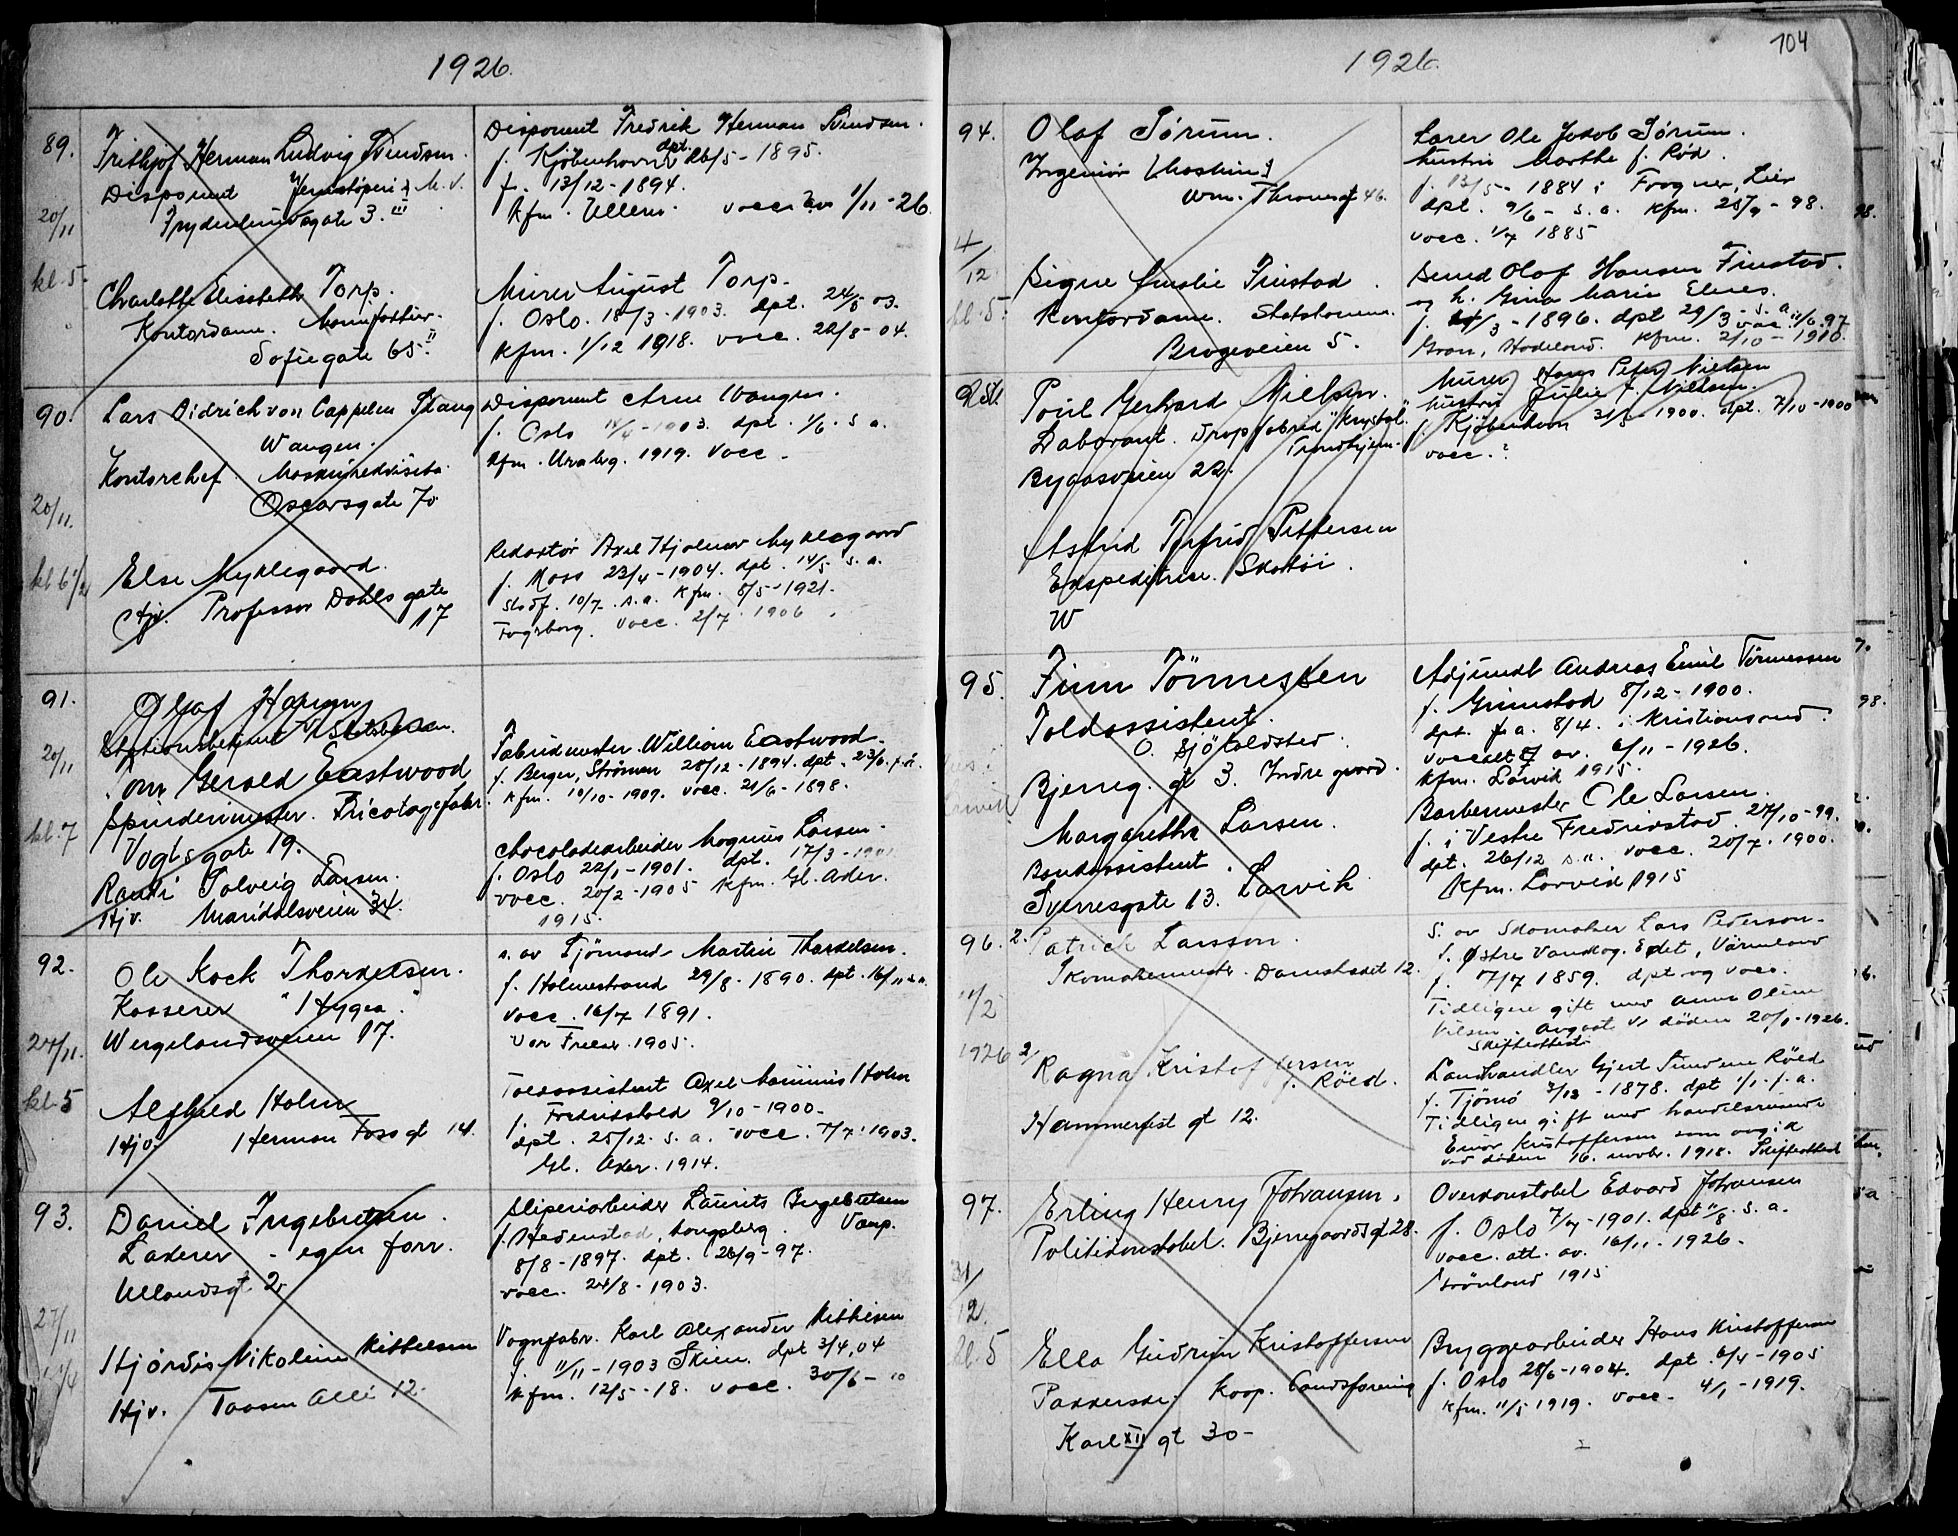 1926.
89.
Frithjof Herman Ludvig Svendsen.
Disponent Jernstøperi & M. V.
Frydenlundsgate 3. III
20/11
kl. 5
Charlotte Elisabeth Torp.
Kontordame.
Sofiegate 65. II
Disponent Fredrik Herman Svendsen.
f. Kjøbenhavn dpt. 26/5 - 1895.
f. 13/12 - 1894.
Kfm. Ullern. vacc. 1/11 - 26.
Murer August Torp.
f. Oslo. 15/3 - 1903. dpt. 24/5 03.
Kfm. 1/12 1918. vacc. 22/8 - 04.
90.
Lars Didrich von Cappelen Thaug
Wangen.
Kontorchef
Oscarsgate 70
20/11.
kl 6 1/2
Else Myklegaard.
Hjv. Professor Dahls gate
17
Disponent Arne Wangen.
f. Oslo 1903. dpt. 1/6. s. a.
Kfm. Uranbg. 1919. Vacc -
Redaktør Axel Hjalmar Myklegaard
f. Moss 23/4 - 1904. dpt. 14/5 s. a.
Kfm. 8/5 - 1921.
Fagerborg. vacc. 2/7 1906.
91.
Olaf Hansen
Stationsbetjent v Statsbanen.
20/11
kl. 7
Gerald Eastwood
Spinderimester. Tricotagefabr.
Vogtsgate 19.
Randi Solveig Larsen.
Hjv. Maridalsveien 34.
Fabrikmester William Eastwood.
f. Berger, Strømm 28/12 - 1894. dpt. 23/6.
Kfm. 10/10 - 1909. vacc. 21/6 - 1898.
Chocoladearbeider Magnus Larsen.
f. Oslo 22/1 - 1901. dpt. 17/3 - 1901
vacc. 20/2 - 1905 Kfm. Gl. Aker.
1915.
92.
Ole Kock Thorkelsen.
Kasserer "Hygea".
27/11.
Wergelandsveien 17.
kl. 5
Alfhild Holm
Hjv Herman Foss gt 14.
s. av Sjømand Martin Thorkelsen.
f. Holmestrand 29/8 - 1890. dpt. 16/11 s. a.
vacc. 16/7 1891.
Vor Frelser 1905.
Toldassistent Axel Holm
f. Fredrikshald 9/10 - 1900.
dpt. 25/12. s. a. vacc. 7/7. 1903.
Gl. Aker. 1914.
93.
Daniel Ingebretsen.
Lakerer - egen forr.
Ullandsgt. 2
27/11
Hjørdis Nikoline Mikkelsen
Hjv. Taasen Allé 12.
Sliperiarbeider Laurits Ingebretsen
f. Hedenstad, Kongsberg.
8/8 - 1897. dpt. 26/9 - 97.
vacc. 24/8 - 1903.
Vognfabr. Karl Alexander Mikkelsen
f. 11/11 - 1903 Skien. dpt 3/4, 04
Kfm. 12/5 - 18. vacc. 30/6 - 10
104
1926.
94.
Olaf Sørum.
Ingeniør (Maskin)
Wm. Thranesgt 46.
4/12
kl. 5
Signe Amalie Finstad.
Kontordame.
Brageveien 5.
Lærer Ole Jakob Sørum.
hustru Marthe f. Rød.
f. 13/5 - 1884 i Frogner, Lier
dpt. 9/6 - s. a. Kfm. 25/9 - 98.
vacc. 1/7 1885
Olaf Hansen Finstad.
og h. Gina Marie Elnes.
f. /3 - 1896. dpt 29/3 - s. a. vac. 11/6. 97
Gran, Hadeland. Kfm. 2/10 - 1910.
Poul Gerhard Nielsen.
Laborant. Dropsfabrik "Krystal"
Trondhjem.
Bygdøveien 22.
Astrid Torfrid Pettersen
Ekspeditrise. Skotøi.
W
Murer Hans Peter Nielsen
hustru Julie f. Nielsen.
f. Kjøbenhavn 31/8 - 1900. dpt. 7/10 - 1900
vacc. ?
95.
Finn Tönnessen
Toldassistent.
O. Sjøtoldsted.
Bjerreg. gt 3. Indre gaard.
Margarethe Larsen.
Bankassistent.
Sverresgate 13. Larvik
Adjunkt Andreas Emil Tönnessen
f. Grimstad 8/12 - 1900.
dpt. f. a. 8/4. i Kristiansand.
av. 6/11 - 1926.
Kfm. Larvik 1915.
Barbermester Ole Larsen.
f. i Vestre Fredrikstad 27/10 - 99.
dpt. 26/12 s. a. vacc. 20/7. 1900.
Kfm. Larvik 1915
96.
2. Patrick Larsson.
Skomakermester. Damstredet 12.
11/2
1926
2/ Ragna Kristoffersen
f. Røed.
Hammerfest gt 12.
S. av Skomaker Lars Pederson.
f. Østre Vandog. Edet, Värmland
f. 17/7 1859. dpt og vacc.
Tidligere gift med Anne Oline
Nilsen. avgaat v. døden 20/1 - 1926.
Skifteattest.
Landhandler Gjert Simonsen Røed
f. Tjømø 3/12 - 1878. dpt 1/1. f. a.
Tidligere gift med handelsreisende
Einar Kristoffersen som avgik
ved døden 16. novbr. 1918. Skifteattest
97.
Erling Henry Johansen.
Politikonstabel. Bjerregaardsgt 28.
31/12.
kl. 5
Ella Gudrun Kristoffersen
Pakkerske. Koop. Landsforening
Karl XII gt 30 -
Overkonstabel Edvard Johansen
f. Oslo 7/7 - 1901. dpt 11/8. s. a.
vacc. att. av. 16/11 - 1926.
Grønland 1915
Bryggearbeider Hans Kristoffersen
f. Oslo 28/6 - 1904. dpt. 6/4 - 1905
Kfm. 11/5 1919. vacc. 4/1 - 1919.